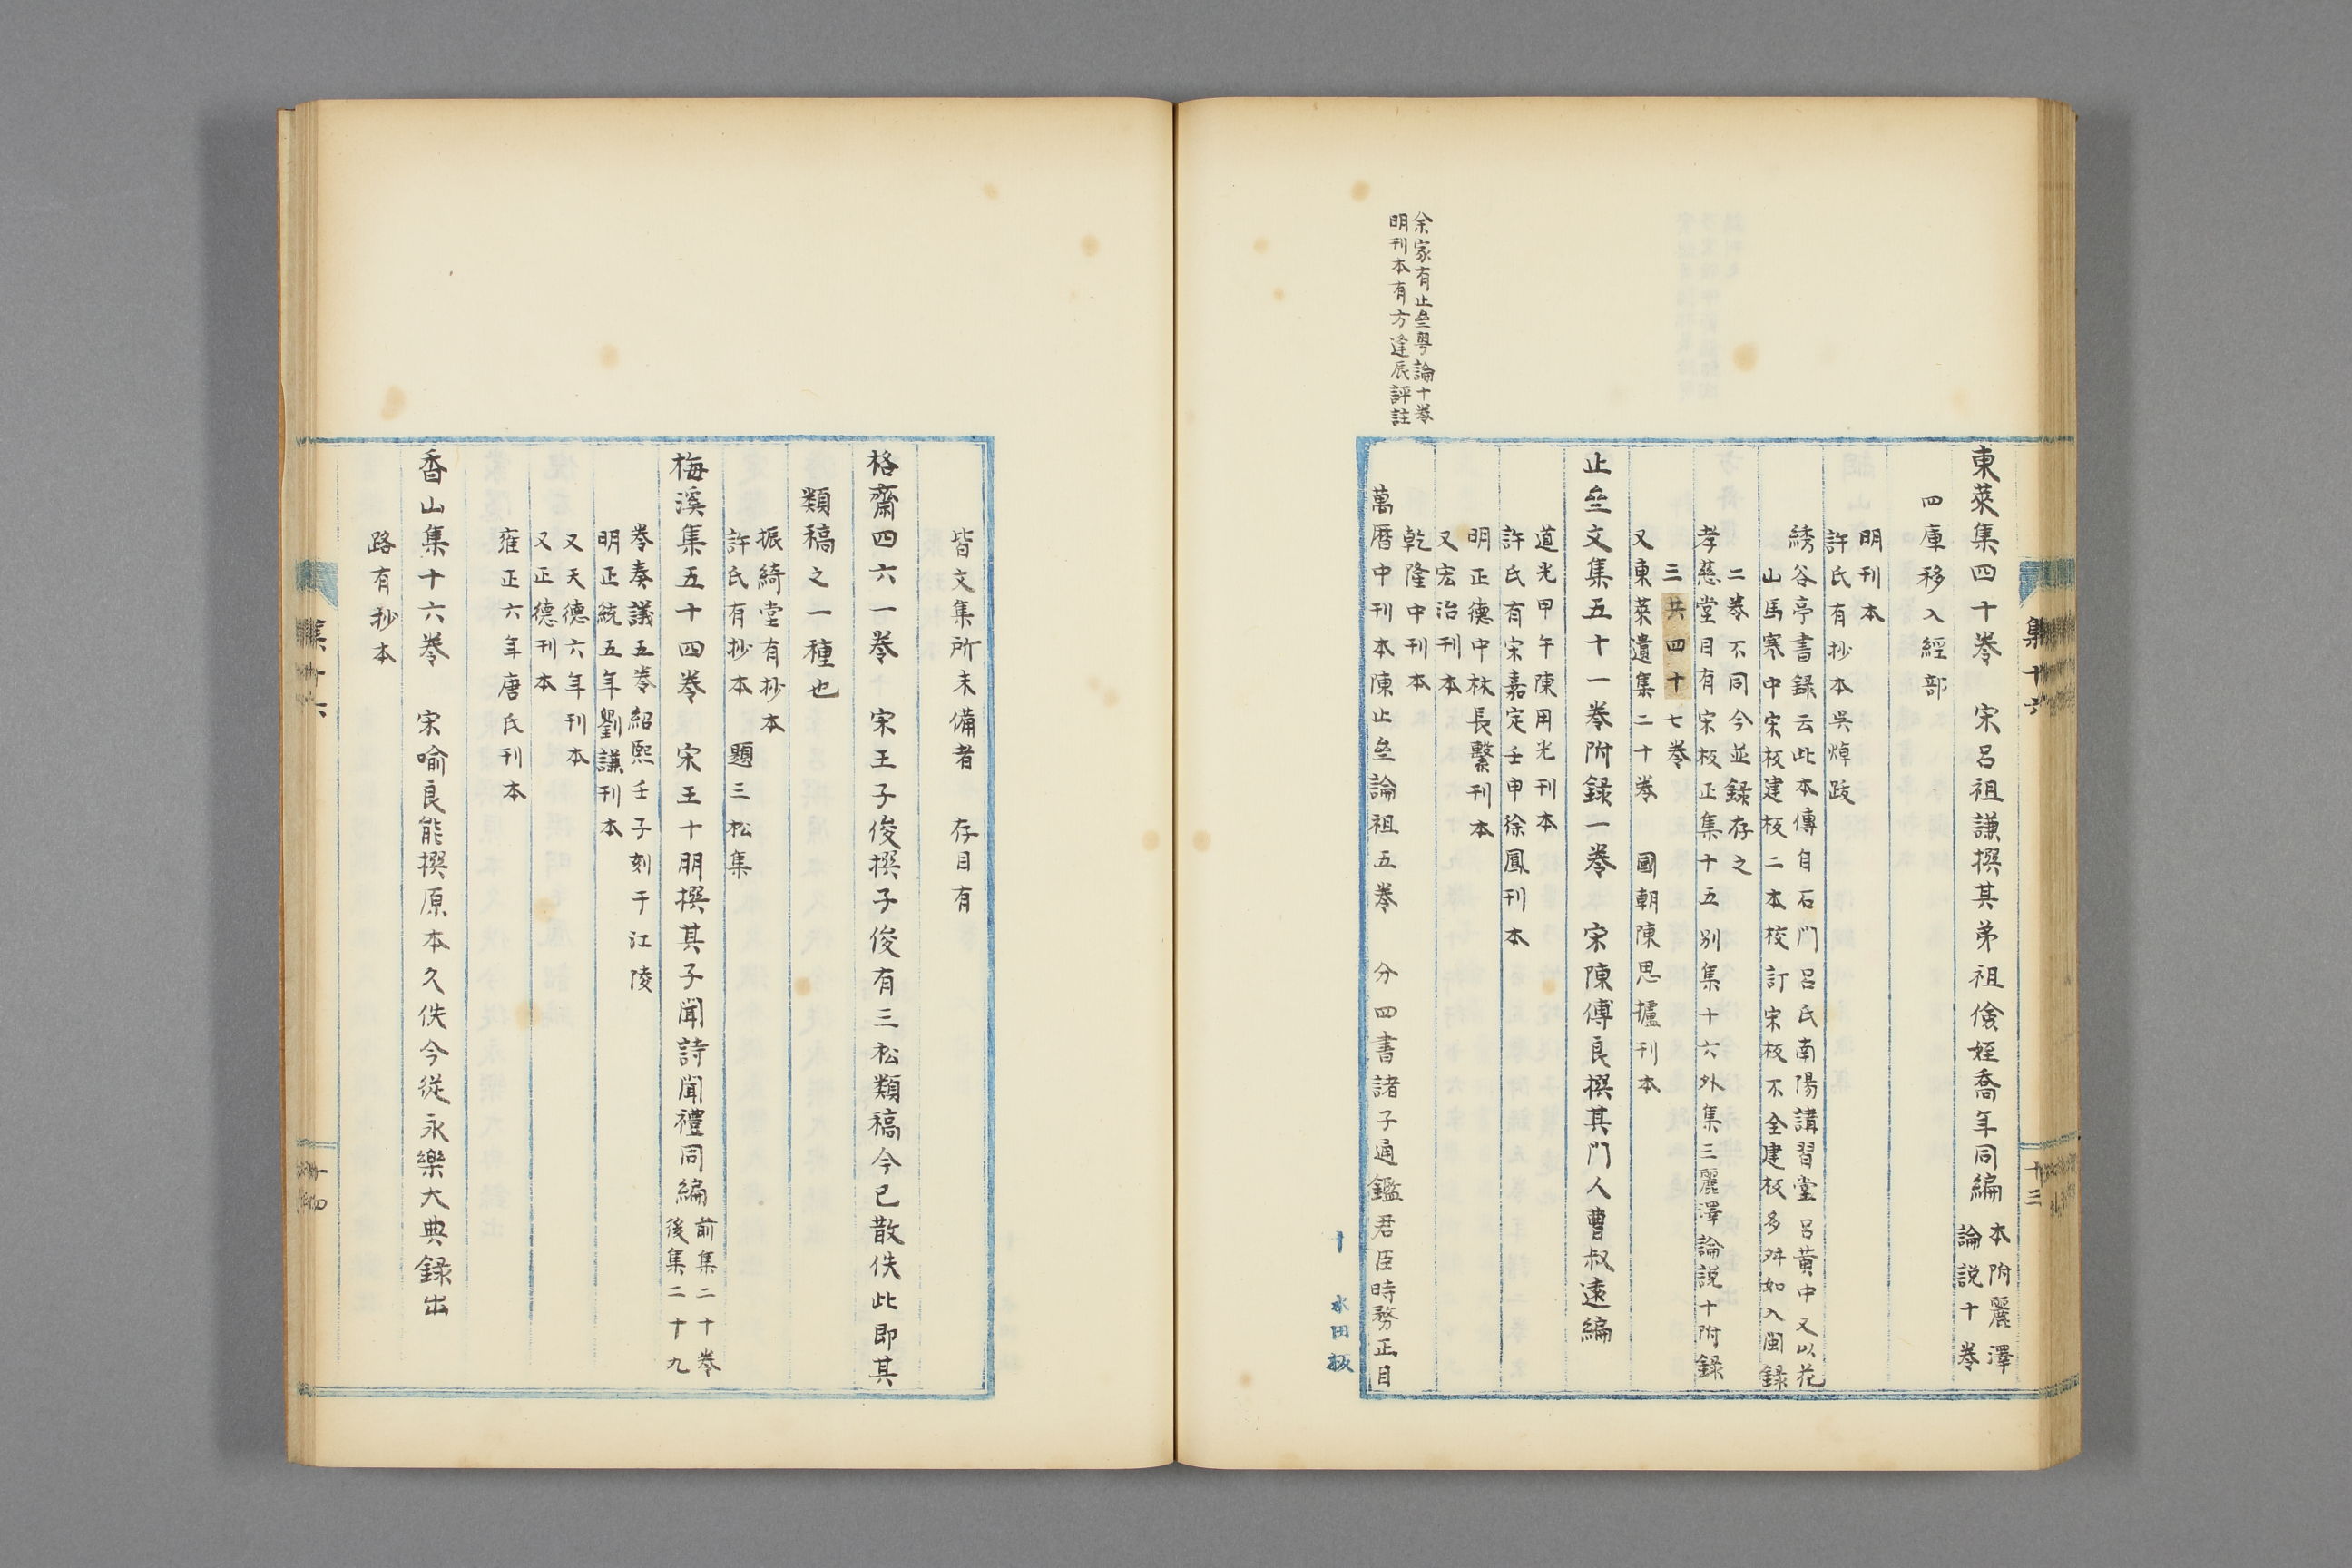 東萊集四十卷　宋呂祖謙撰其弟祖儉姪喬年同編
本附麗澤
論説十卷
四庫移入經部
明刊本
許氏有抄本吳焯跋
綉谷亭書録云此本傳自石門呂氏南陽講習堂呂黄中又以花
山馬寒中宋板建板二本校訂宋板不全建板多舛如入閩録
二卷不同今並録存之
孝慈堂目有宋板正集十五別集十六外集三麗澤論説十附録
三共四十七卷
又東萊遺集二十卷　國朝陳思攎刊本
止堂文集五十一卷附録一卷　宋陳傅良撰其門人曹叔遠編
道光甲午陳用光刊本
許氏有宋嘉定壬申徐鳳刊本
明正德中林長繫刊本
又宏治刊本
乾隆中刊本
萬曆中刊本陳止垒論祖五卷　分四書諸子通鑑君臣時務正目
余家有止垒粤論十卷
明刊本有方逢辰評註
集十六
十三
水田板
皆文集所未備者　存目有
格齋四六一卷　宋王子俊撰子俊有三松類稿今已散佚此即其
類稿之一種也
振綺堂有抄本
許氏有抄本　題三松集
梅溪集五十四卷　宋王十朋撰其子聞詩聞禮同編
前集二十卷
後集二十九
卷奏議五卷紹熙壬子刻于江陵
明正統五年劉謙刊本
又天德六年刊本
又正德刊本
雍正六年唐氏刊本
香山集十六卷　宋喻良能撰原本久佚今從永樂大典録出
路有抄本
集十六
十四